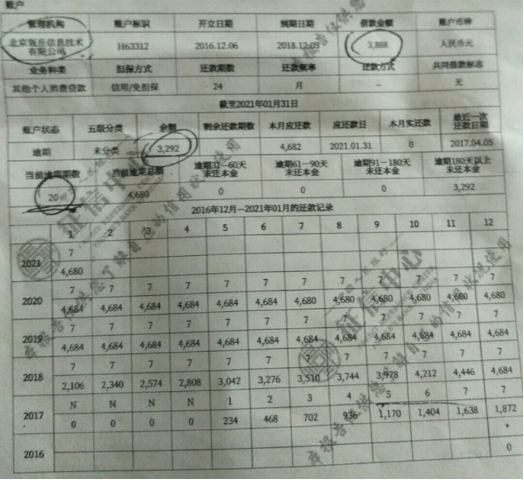 账户
管理机构 账户标识 开立日期 到期日期 借款金额 账户币种
有限公司 H63312 2016.12.06 2018.12.05 3,888 人民币元
业务种类 担保方式 还款期数 还款频率 还款方式 共同借款标志
其他个人消费贷款 信用/免担保 24 月 -- 无
截至2021年01月31日
账户状态 五级分类 余额 剩余还款期数 本月应还款 应还款日 本月实还款 最近一次还款日期
逾期 未分类 3,292 4,682 2021.01.31 0 2017.04.05
当前逾期期数 当前逾期总额 逾期31—60天未还本金 逾期61—90天未还本金 逾期91—180天未还本金 逾期180天以上未还本金
20 4,680 0 0 0 3,292
2016年12月—2021年01月的还款记录
1 2 3 4 5 6 7 8 9 10 11 12
2021 7
4,680
2020 7 7 7 7 7 7 7 7 7 7 7 7
4,684 4,684 4,684 4,684 4,684 4,684 4,680 4,680 4,680 4,680 4,680 4,680
2019 7 7 7 7 7 7 7 7 7 7 7 7
4,684 4,684 4,684 4,684 4,684 4,684 4,684 4,684 4,684 4,684 4,684 4,684
2018 7 7 7 7 7 7 7 7 7 7 7 7
2,106 2,340 2,574 2,808 3,042 3,276 3,510 3,744 3,978 4,212 4,446 4,684
2017 N N N N 1 2 3 4 5 6 7 7
0 0 0 0 234 468 702 936 1,170 1,404 1,638 1,872
2016 *
0
征信中心